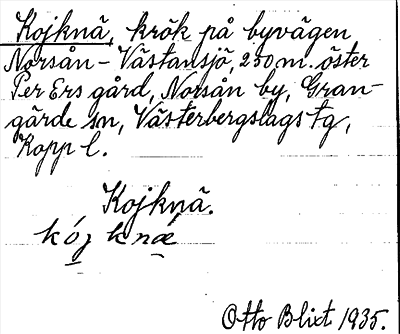 Kojknä, krök på byvägen
Norsån - Västansjö, 250 m. öster
Per Ers gård, Norsån by, Gran-
gärde sn, Västerbergslags tg,
Kopp l.
Kojknä.
kój knæ
Otto Blixt 1935.